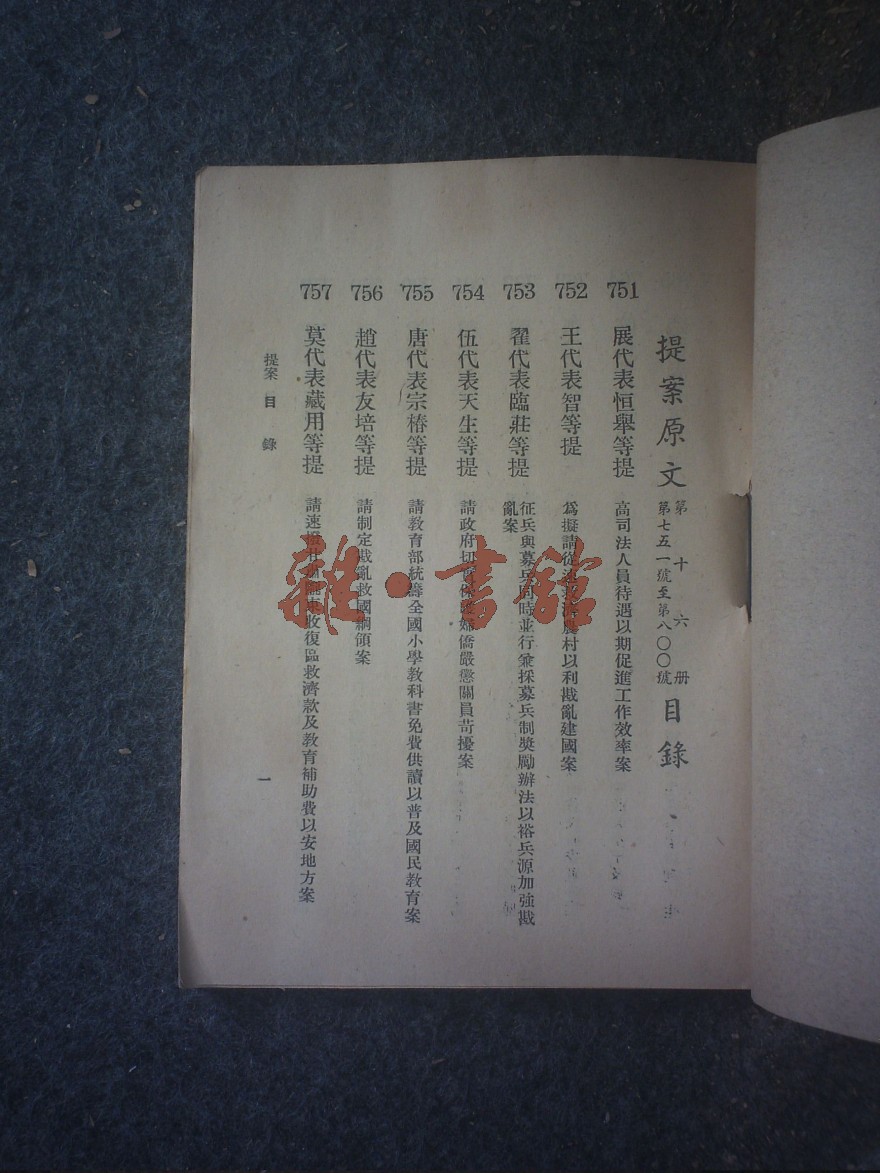 提案原文 第十六册 第七五一號至第八〇〇號 目錄
751 展代表恒舉等提 高司法人員待遇以期促進工作效率案
752 王代表智等提 爲擬請從速救濟農村以利戡亂建國案
753 翟代表臨莊等提 征兵與募兵同時並行兼採募兵制獎勵辦法以裕兵源加強戡
亂案
754 伍代表天生等提 請政府切實保護婦僑嚴懲關員苛擾案
755 唐代表宗椿等提 請教育部統籌全國小學教科書免費供讀以普及國民教育案
756 趙代表友培等提 請制定戡亂救國綱領案
757 莫代表藏用等提 請速撥甘肅隴東收復區救濟款及教育補助費以安地方案
提案目錄
一
雜·書館